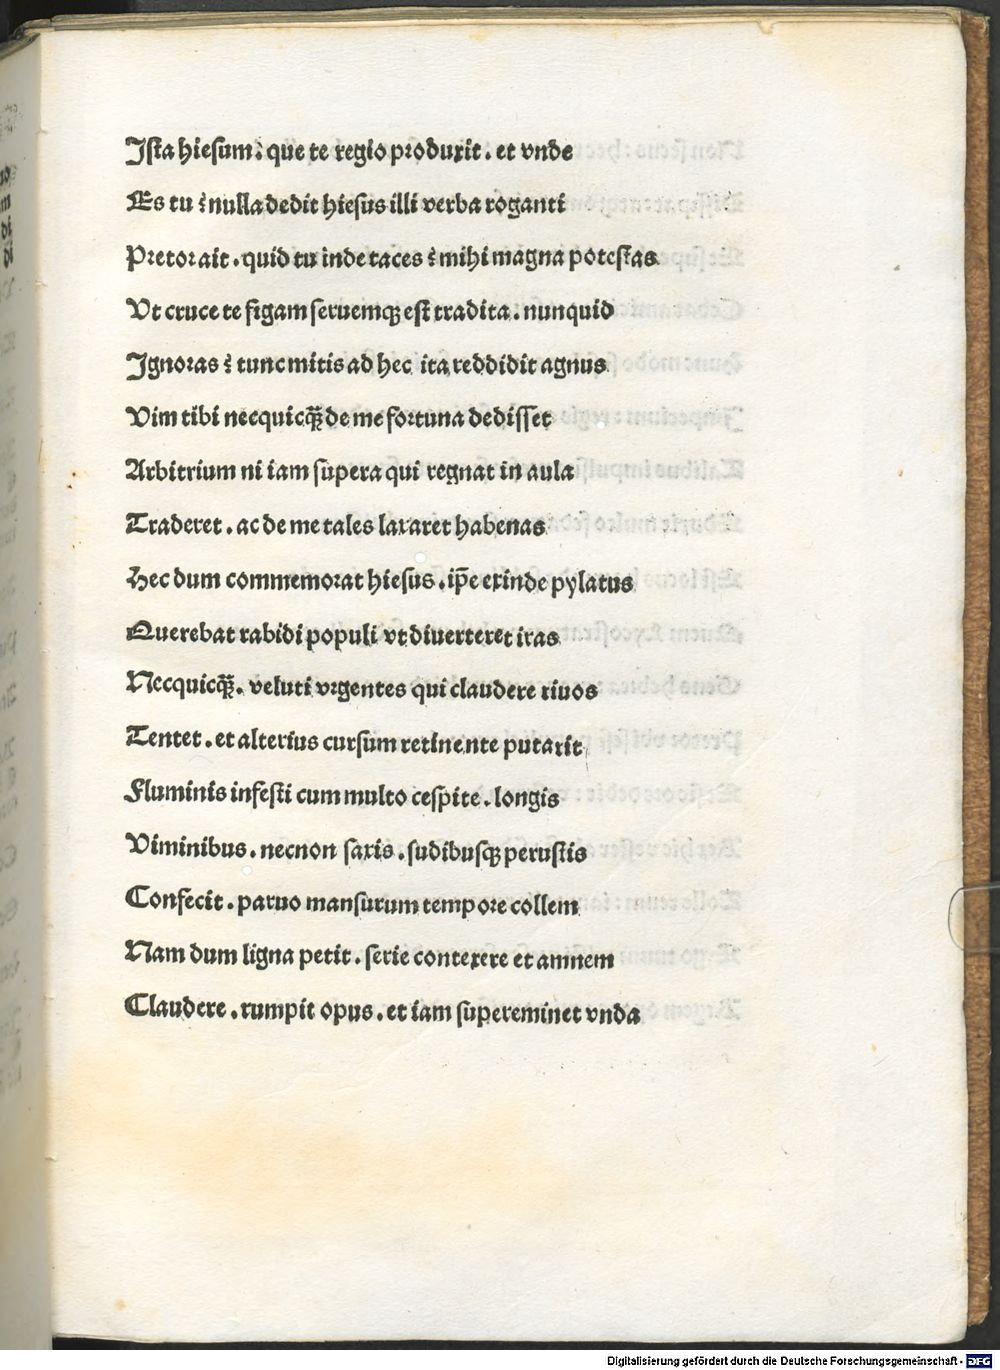 Ista hiesum: que te regio produxit. et vnde
Es tu? nulla dedit hiesus illi verba roganti
Pretor ait. quid tu inde taces? mihi magna potestas
Vt cruce te figam seruemqꝫ est tradita. nunquid
Ignoras? tunc mitis ad hec ita reddidit agnus
Vim tibi necquicq̃ de me fortuna dedisset
Arbitrium ni iam supera qui regnat in aula
Traderet. ac de me tales laxaret habenas
Hec dum commemorat hiesus. ip̃e exinde pylatus
Querebat rabidi populi vt diuerteret iras
Necquicq̃. veluti vrgentes qui claudere riuos
Tentet. et alterius cursum retinente putarit
Fluminis infesti cum multo cespite. longis
Viminibus. necnon saxis. sudibusqꝫ perustis
Confecit. paruo mansurum tempore collem
Nam dum ligna petit. serie contexere et amnem
Claudere. rumpit opus. et iam supereminet vnda
Digitalisierung gefördert durch die Deutsche Forschungsgemeinschaft - DFG